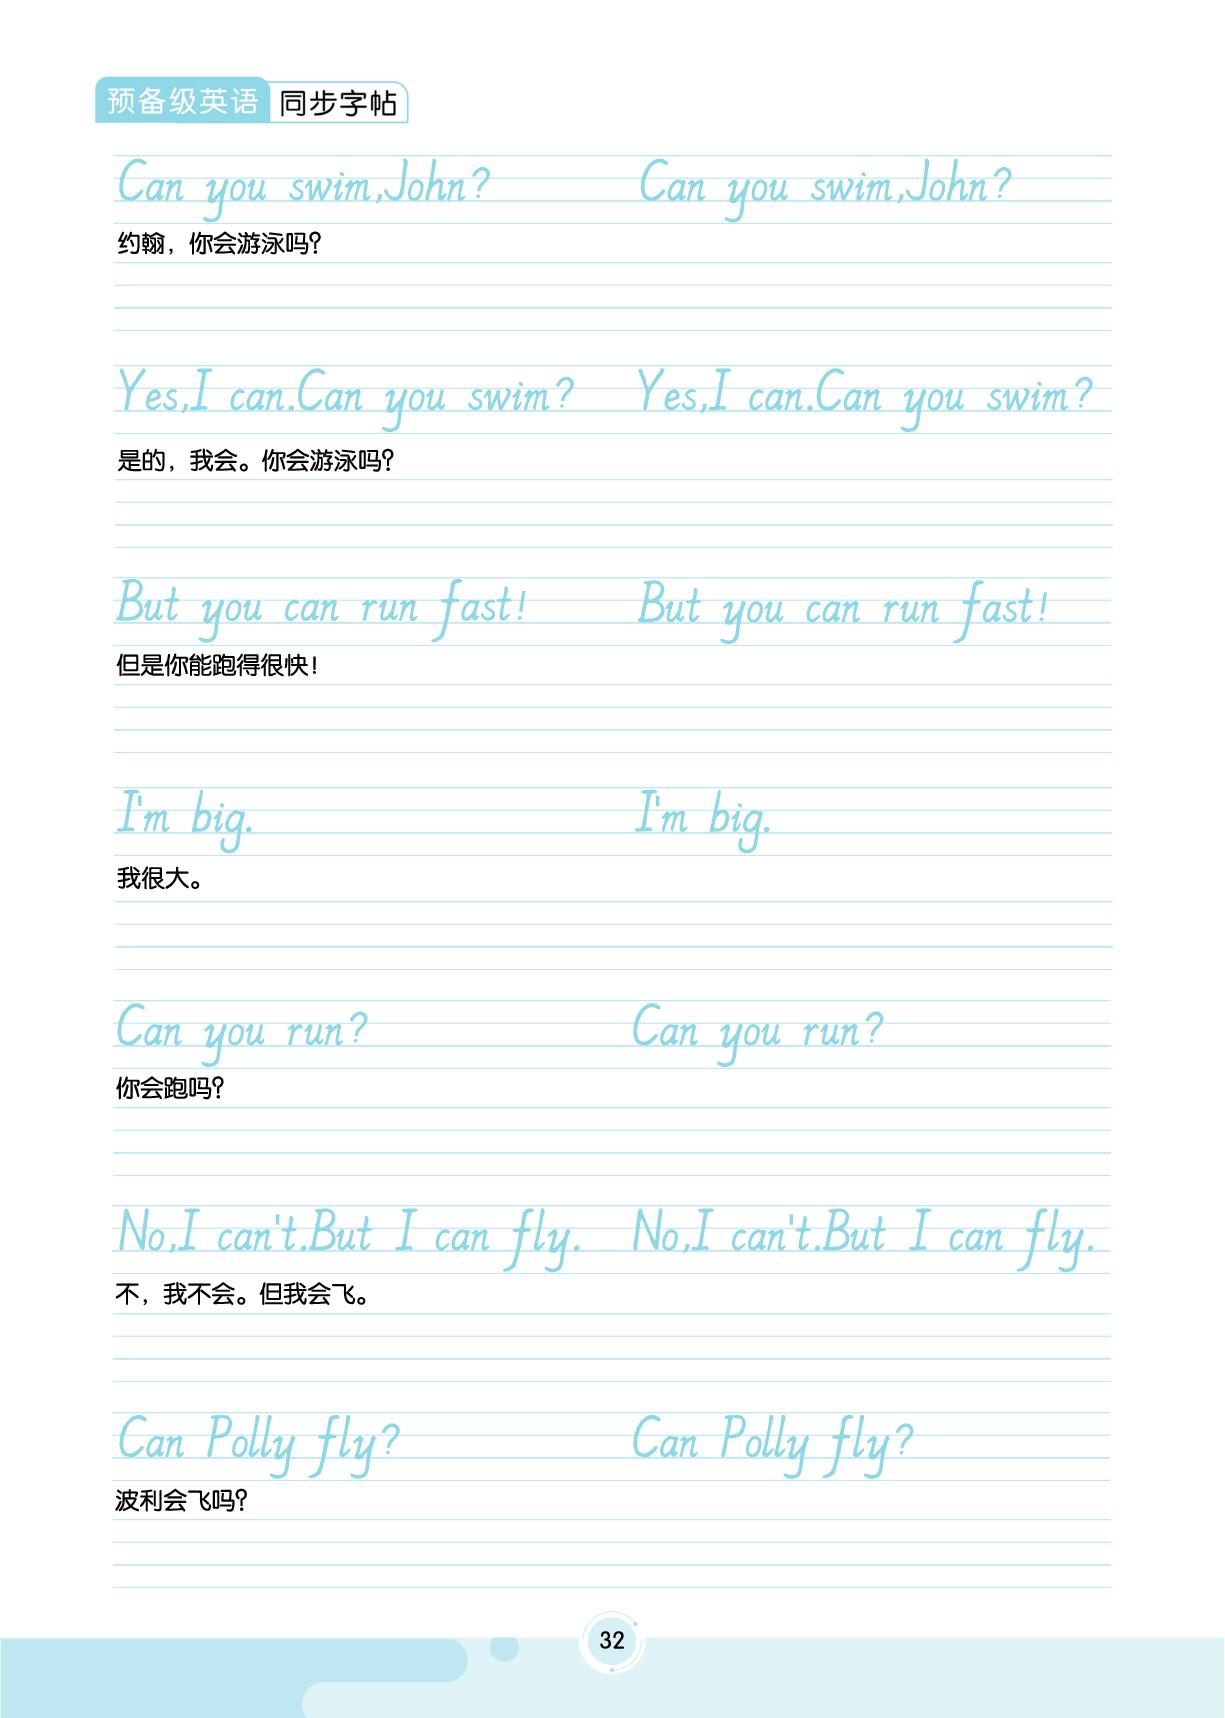 预备级英语 同步字帖
Can you swim,John? Can you swim,John?
约翰，你会游泳吗？
Yes,I can.Can you swim? Yes,I can.Can you swim?
是的，我会。你会游泳吗？
But you can run fast! But you can run fast!
但是你能跑得很快！
I'm big. I'm big.
我很大。
Can you run? Can you run?
你会跑吗？
No,I can't.But I can fly. No,I can't.But I can fly.
不，我不会。但我会飞。
Can Polly fly? Can Polly fly?
波利会飞吗？
32